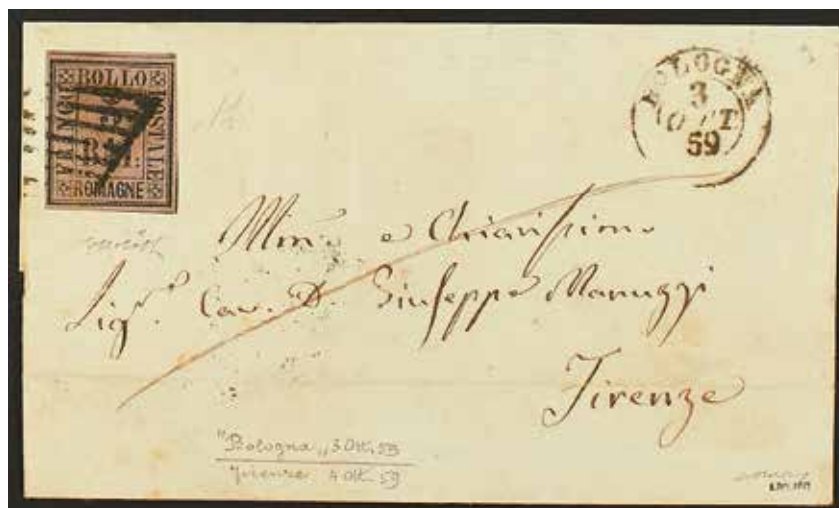 BOLLO
POSTALE
ROMAGNE
BOLOGNA
3
OTT
59
e Chiarissimo
Sigr. Cav. D. Giuseppe Manuzzi
Firenze
"Bologna" 3 Ott. 59
Firenze 4 Ott. 59